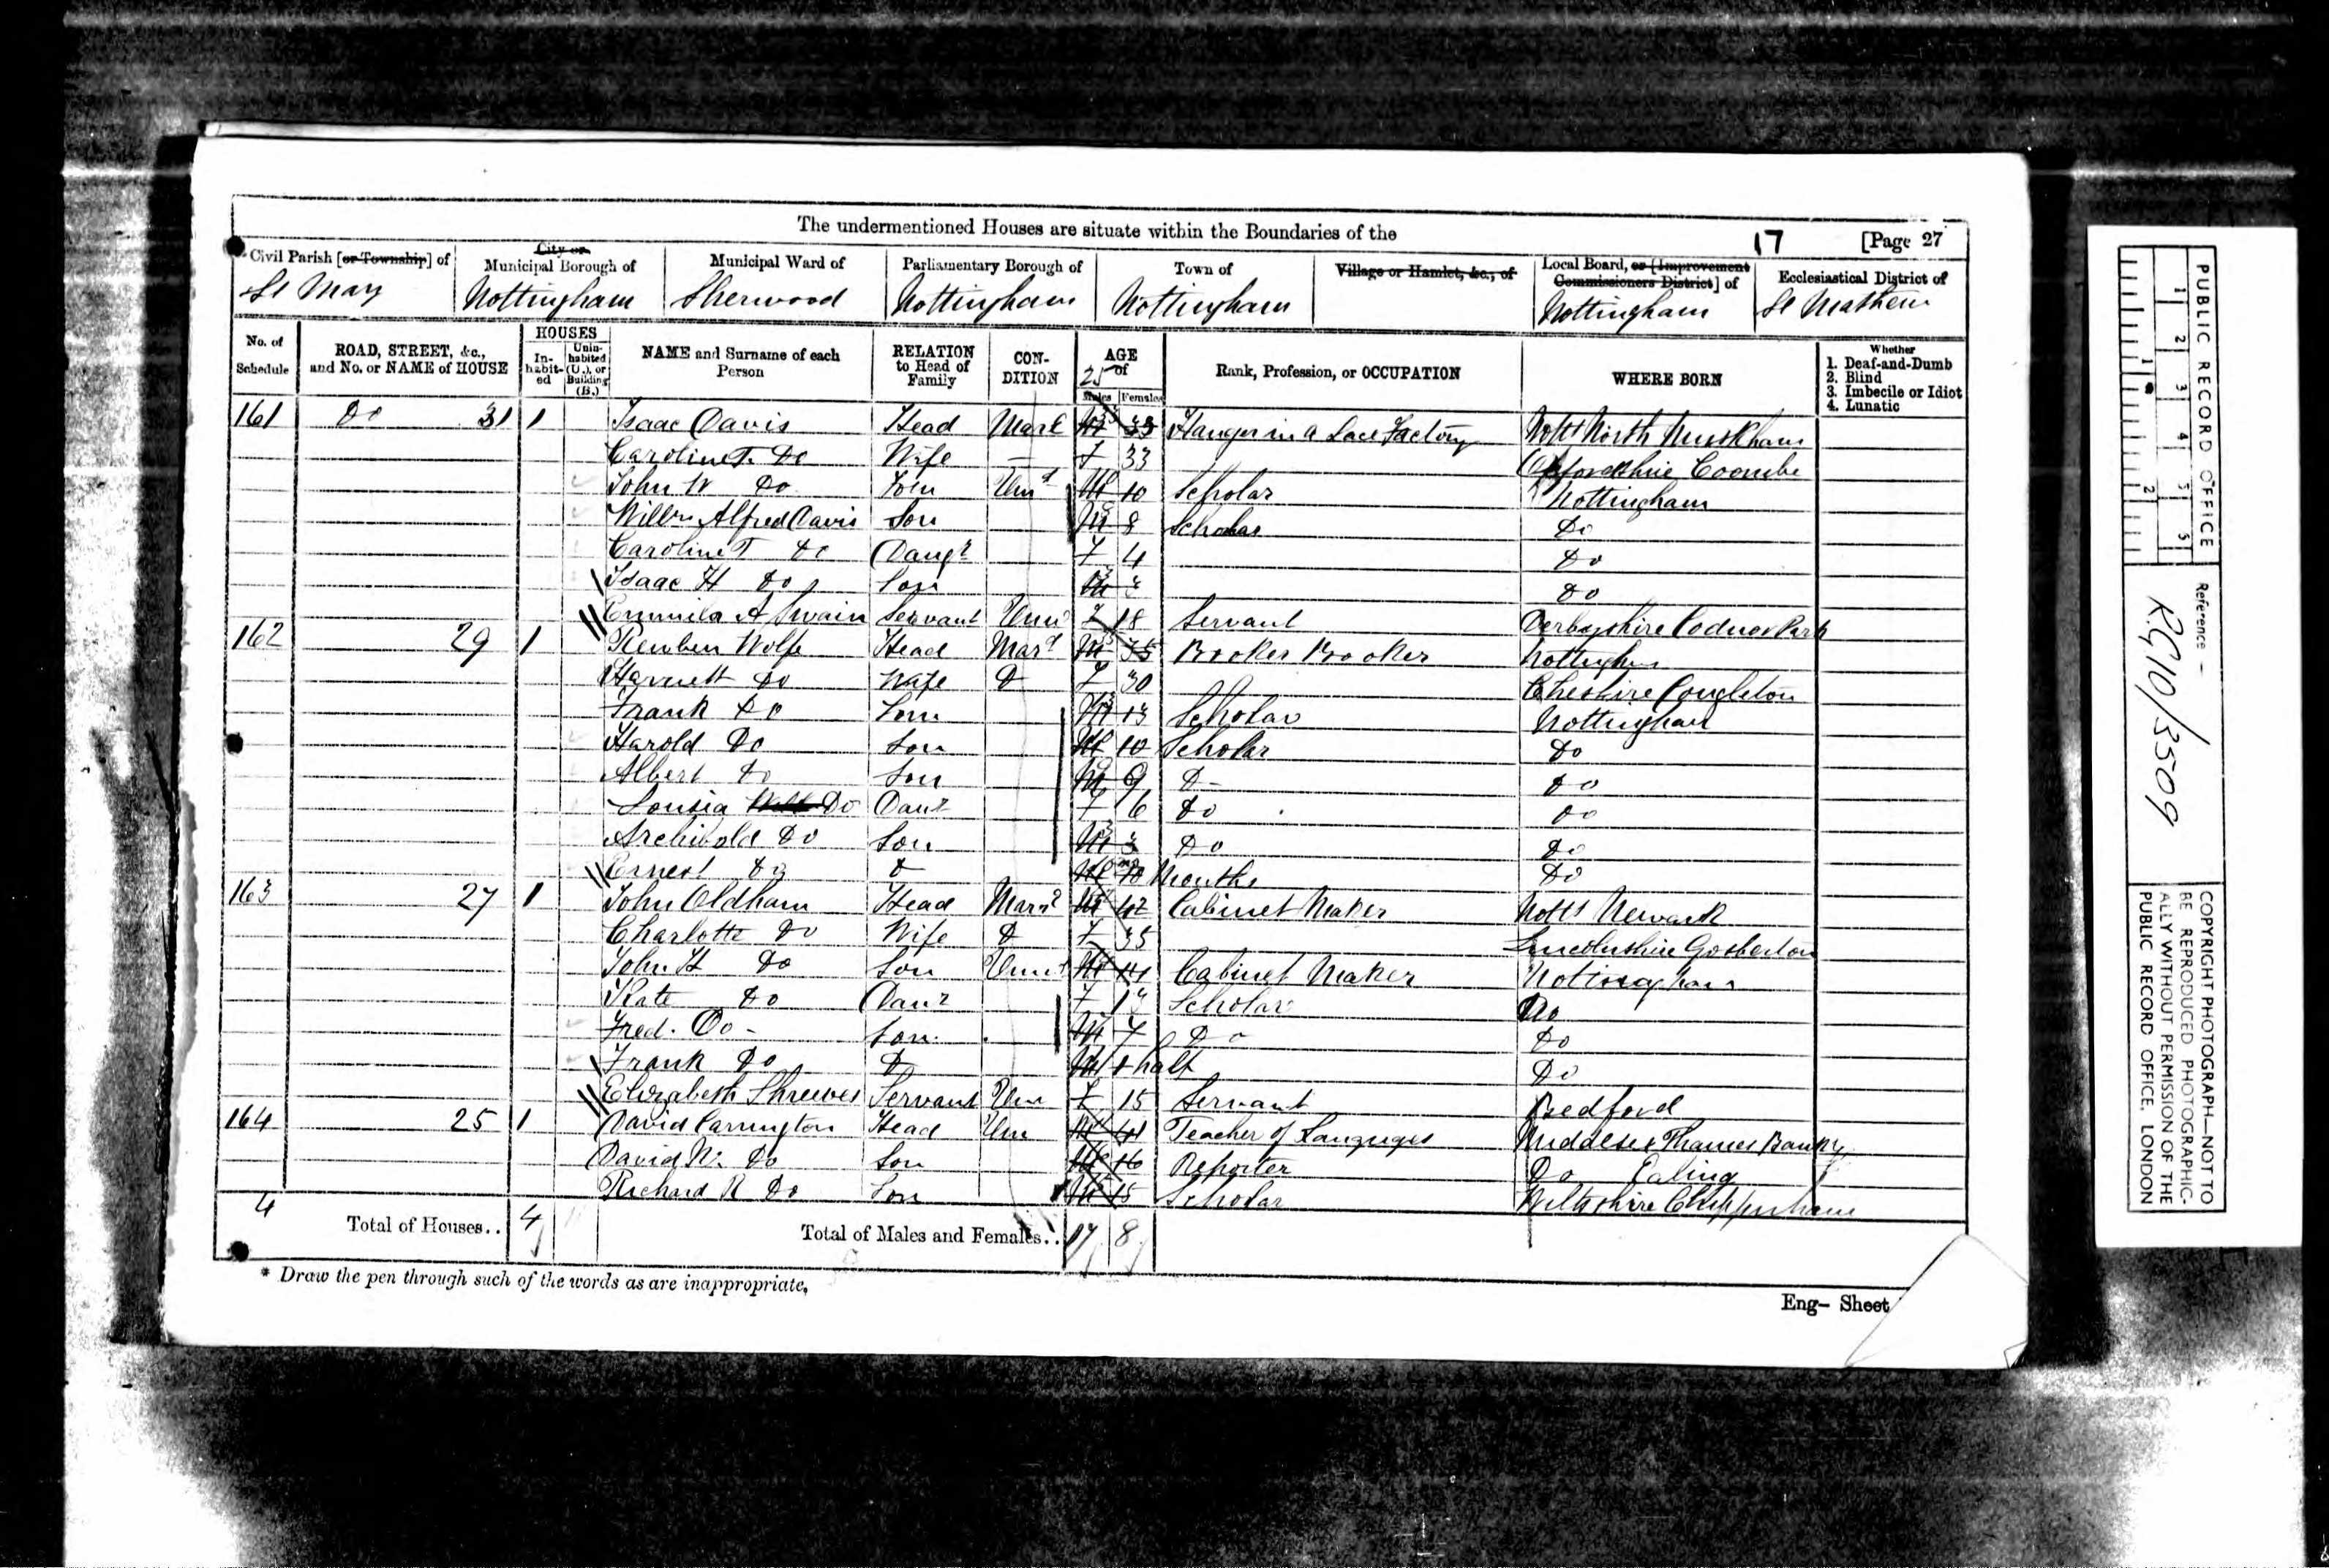 The undermentioned Houses are situate within the Boundaries of the
17 [Page 27
Civil Parish [or Township] of
City or Municipal Borough of
Municipal Ward of
Parliamentary Borough of
Town of
Village or Hamlet, &c., of
Local Board, or [Improvement Commissioners District] of
Ecclesiastical District of
St Mary Nottingham Sherwood Nottingham Nottingham Nottingham St Mathew
No. of Schedule
ROAD, STREET, &c., and No. or NAME of HOUSE
HOUSES
In-habit-ed
Unin-habited (U.), or Building (B.)
NAME and Surname of each Person
RELATION to Head of Family
CON-DITION
AGE of
25
Males Females
Rank, Profession, or OCCUPATION
WHERE BORN
Whether
1. Deaf-and-Dumb
2. Blind
3. Imbecile or Idiot
4. Lunatic
161 Do 31 1 Isaac Davis Head Mard M 33 Hanger in a Lace Factory Notts North Muskham
Caroline T. Do Wife — F 33 Oxfordshire Coombe
John W Do Son Unmd M 10 Scholar Nottingham
Willm Alfred Davis Son M 8 Scholar Do
Caroline T Do Daugr F 4 Do
Isaac H Do Son M 3 Do
A Swain Servant Unm F 18 Servant Derbyshire Codnor Park
162 29 1 Reuben Wolfe Head Mard M 35 Nottingham
Harriett Do Wife D F 30 Cheshire Congleton
Frank Do Son M 13 Scholar Nottingham
Harold Do Son M 10 Scholar Do
Albert Do Son M 9 D- Do
Lousia Do Daur F 6 Do Do
Archibold Do Son M 3 Do Do
Ernest Do D M 10 Months Do
163 27 1 John Oldham Head Marrd M 42 Cabinet Maker Notts Newark
Charlotte Do Wife D F 35 Lincolnshire Gosberton
John H Do Son Unmd M 14 Cabinet Maker Nottingham
Kate Do Daur F Scholar Do
Fred. Do- Son. M 7 Do Do
Frank Do D M 1 half Do
Elizabeth Shreeves Servant Unm F 15 Servant Bedford
164 25 1 David Carrington Head Unm M 41 Teacher of Languges Middlesex Thames Bank
David W. Do Son M 16 Reporter Do Ealing
Richard R Do Son M 15 Scholar Wiltshire Chippenham
4 Total of Houses.. 4 Total of Males and Females.. 17 8
* Draw the pen through such of the words as are inappropriate.
Eng- Sheet
PUBLIC RECORD OFFICE
1 2 3 4 5
1 2
Reference —
RG10/3509
COPYRIGHT PHOTOGRAPH—NOT TO
BE REPRODUCED PHOTOGRAPHIC-
ALLY WITHOUT PERMISSION OF THE
PUBLIC RECORD OFFICE, LONDON